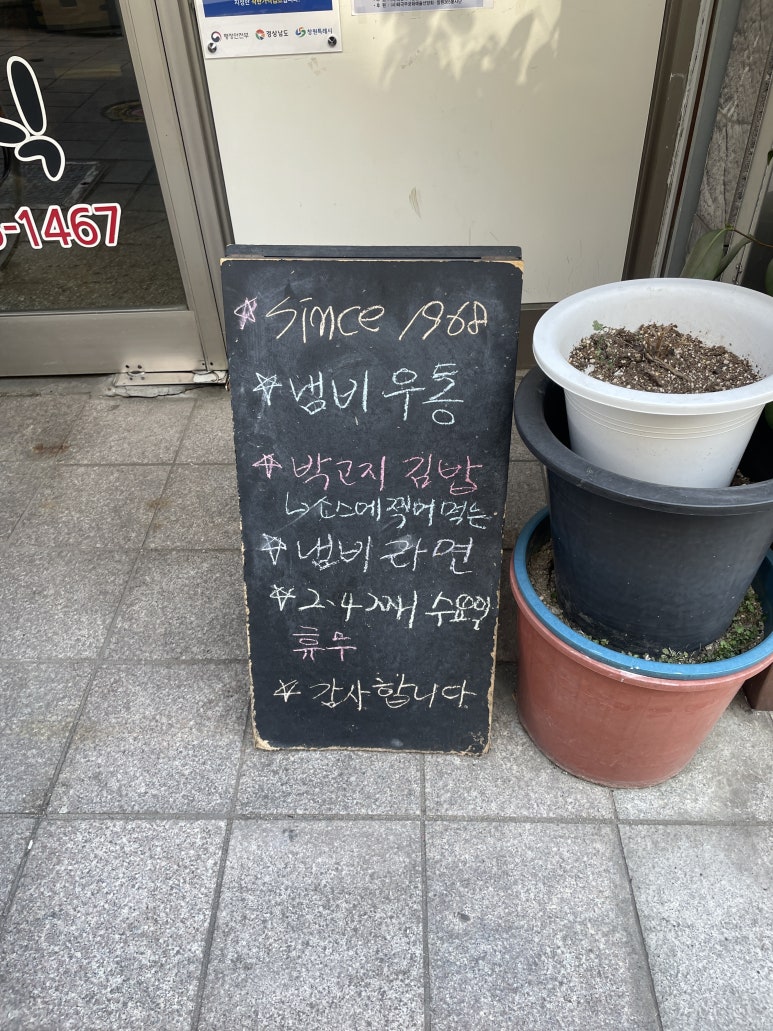 지정된 착한가격업소입니다.
행정안전부 경상남도 창원특례시
-1467
☆ Since 1968
☆ 냄비 우동
☆ 박고지 김밥
↳ 소스에 찍어 먹는.
☆ 냄비 라면
☆ 2.4 째 수요일
휴무
☆ 감사합니다